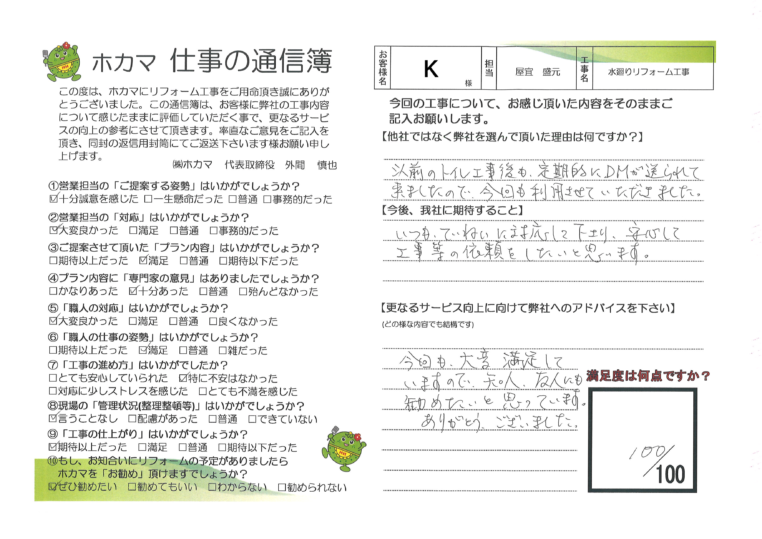 ホカマ 仕事の通信簿
この度は、ホカマにリフォーム工事をご用命頂き誠にありが
とうございました。この通信簿は、お客様に弊社の工事内容
について感じたままに評価していただく事で、更なるサービ
スの向上の参考にさせて頂きます。率直なご意見をご記入を
頂き、同封の返信用封筒にてご返送下さいます様お願い申し
上げます。
㈱ホカマ 代表取締役 外間 慎也
①営業担当の「ご提案する姿勢」はいかがでしょうか?
☑十分誠意を感じた □一生懸命だった □普通 □事務的だった
②営業担当の「対応」はいかがでしょうか?
☑大変良かった □満足 □普通 □事務的だった
③ご提案させて頂いた「プラン内容」はいかがでしょうか?
□期待以上だった ☑満足 □普通 □期待以下だった
④プラン内容に「専門家の意見」はありましたでしょうか?
□かなりあった ☑十分あった □普通 □殆んどなかった
⑤「職人の対応」はいかがでしょうか?
☑大変良かった □満足 □普通 □良くなかった
⑥「職人の仕事の姿勢」はいかがでしょうか?
□期待以上だった ☑満足 □普通 □雑だった
⑦「工事の進め方」はいかがでしたか?
□とても安心していられた ☑特に不安はなかった
□対応に少しストレスを感じた □とても不満を感じた
⑧現場の「管理状況(整理整頓等)」はいかがでしょうか?
☑言うことなし □配慮があった □普通 □できていない
⑨「工事の仕上がり」はいかがでしょうか?
☑期待以上だった □満足 □普通 □期待以下だった
⑩もし、お知合いにリフォームの予定がありましたら
ホカマを「お勧め」頂けますでしょうか?
☑ぜひ勧めたい □勧めてもいい □わからない □勧められない
お客様名 K 様 担当 屋宜 盛元 工事名 水廻りリフォーム工事
今回の工事について、お感じ頂いた内容をそのままご
記入お願いします。
【他社ではなく弊社を選んで頂いた理由は何ですか?】
以前のトイレ工事後も、定期的にDMが送られて
来ましたので、今回も利用させていただきました。
【今後、我社に期待すること】
いつも、ていねいに対応して下さり、安心して
工事等の依頼をしたいと思います。
【更なるサービス向上に向けて弊社へのアドバイスを下さい】
(どの様な内容でも結構です)
今回も、大変満足して
いますので、知人、友人にも
勧めたいと思っています。
ありがとうございました。
満足度は何点ですか?
100/100